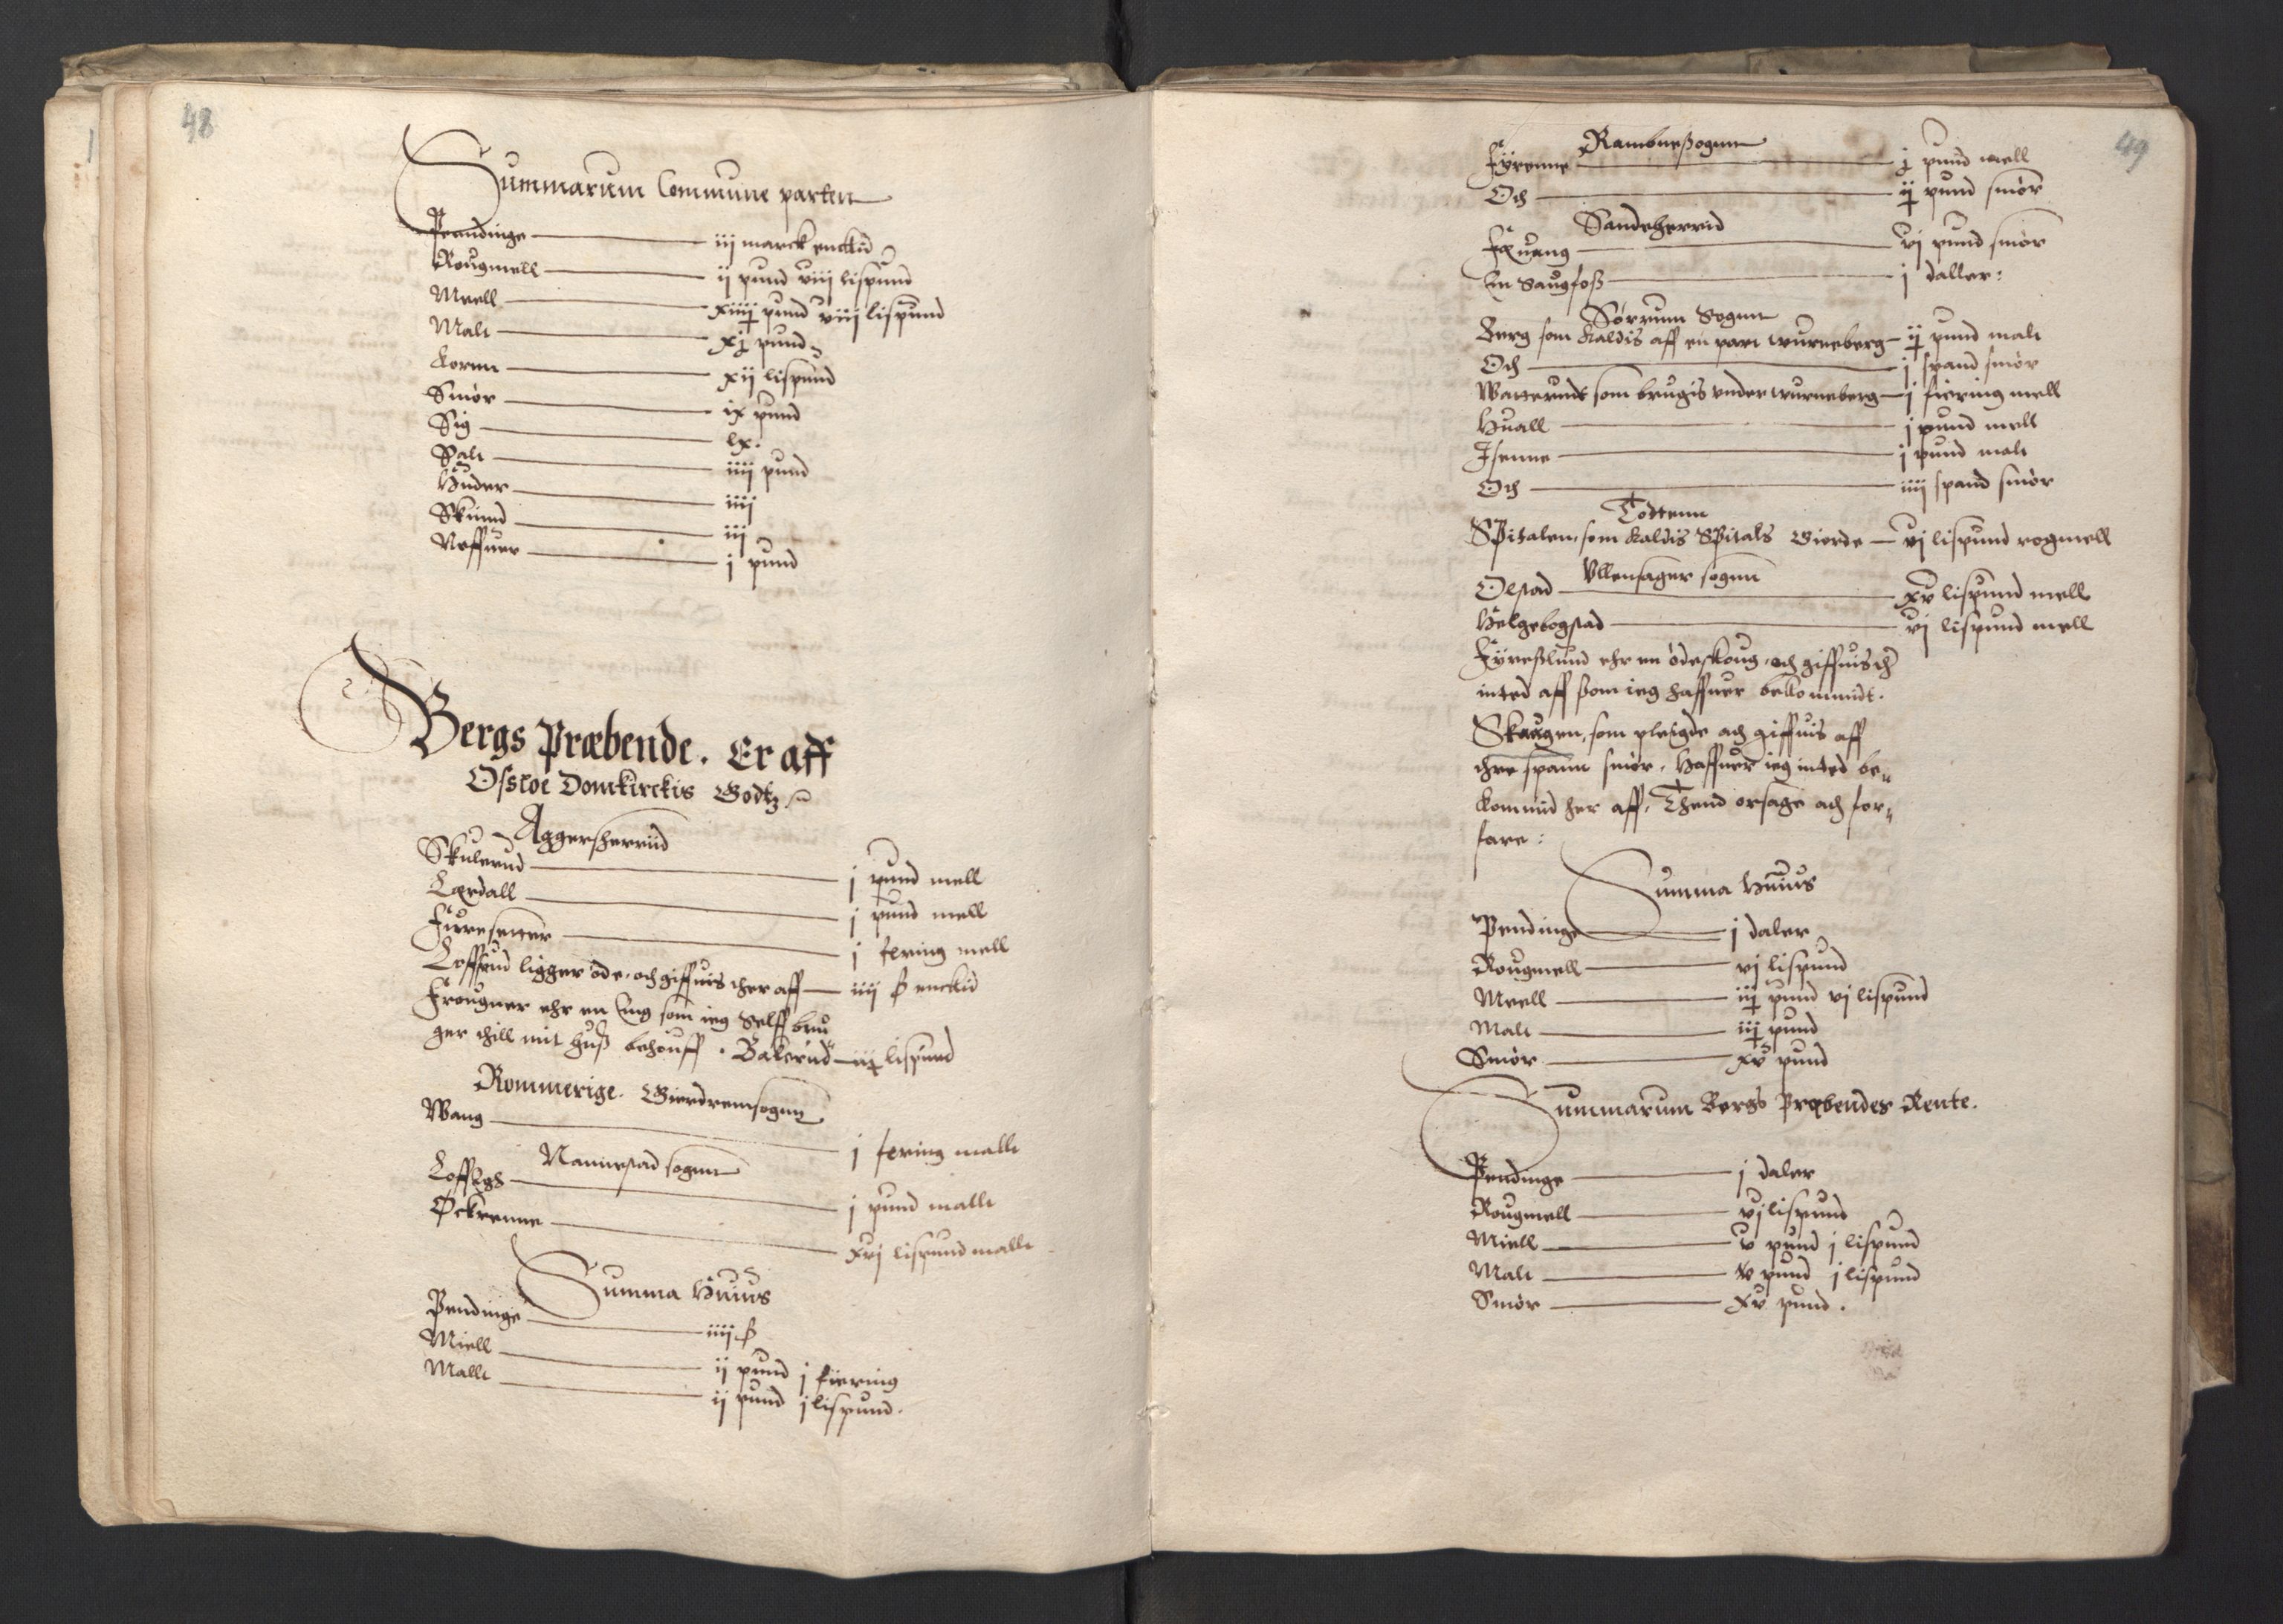 48
Summarum Commune parten
Pendinge — iij marck enckid
Rougmell — ij pund viij lispund
Meell — xiiij pund viij lispund
Malt — xj pund
Kornn — xij lispund
Smør — ix pund
Sig — lx.
Salt — iiij pund
Huder — iiij
Skinnd — iij
Neffuer — j pund
Bergs Præbende. Er aff
Osloe Domkirckis Godtz
Aggersherrid
Skulerud — j pund mell
Lørdall — j pund mell
Furesetter — j fering mell
Loffrud ligger øde, och giffuis ther aff — iiij ß enckid
Frougner ehr en Eng som ieg Selff bru
ger thill mit huß behouff. Bakerud — iij lispund
Rommerige. Gierdremsognn
Wang — j fering mallt
Nannestad sognn
Løffegh — j pund mallt
Øckrenne — xvj lispund mallt
Summa Huius
Pendinge — iiij ß
Miell — ij pund j fiering
Mallt — ij pund j lispund.
49
Ramneßognn
Fyrenne — j pund mell
Och — ij pund smør
Sandeherrid
Fæuang — vj pund smør
En Saugfoß — j daller:
Sørrum Sognn
Berg som kaldis aff en part wurneberg — ij pund malt
Och — j spand smør
Watterudt som brugis vnder wurneberg — j fiering mell
Huall — j pund mell
Isenne — j pund malt
Och — iiij spand smør
Todtenn
Spitalen, som kaldis Spitals Gierde — vj lispund rogmell
Vllensager sognn
Olstad — xv lispund mell
Helgebogstad — vj lispund mell
Fyreßlund ehr en ødeskoug, och giffuis ther
inted aff ßom ieg haffuer bekommidt.
Skougen, som pleigde ath giffuis aff
thre spann smør, Haffuer ieg inted be„
kommid her aff, Thend orsage ath for„
fare:
Summa Huius
Pendinge — j daler
Rougmell — vj lispund
Meell — iij pund vj lispund
Malt — iij pund
Smør — xv pund
Summarum Bergs Præbendes Rente.
Pendinge — j daler
Rougmell — vj lispund
Miell — v pund j lispund
Malt — v pund j lispund
Smør — xv pund.